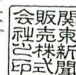 関東新聞
販売株式
会社之印